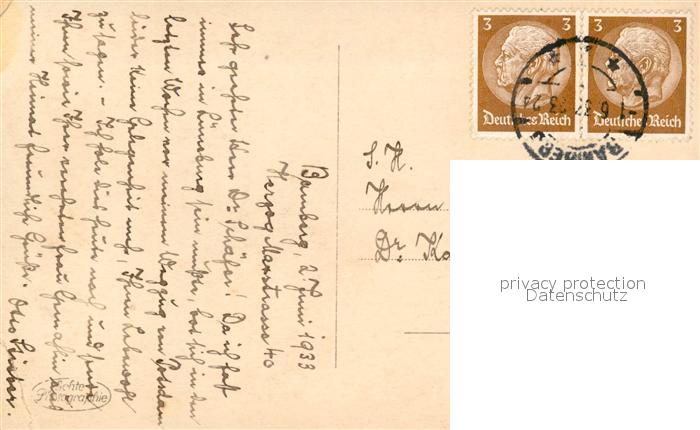 Bamberg, 2. Juni 1933
Herzog Maxstrasse 40
Sehr geehrter Herr Dr. Schäfer! Da ich fast
immer in Lüneburg sein mußte, bot sich in den
letzten Wochen vor meinem Wegzug von Potsdam
leider keine Gelegenheit mehr, Ihnen Lebewohl
zu sagen. – Ich hole dies heute nach und sende
Ihnen sowie Ihrer verehrten Frau Gemahlin aus
meiner Heimat freundliche Grüße. Otto
Echte
Photographie
3 3
Deutsches Reich
3
Deutsches Reich
BAMBERG
S. H.
Herrn
Dr. Ka
privacy protection
Datenschutz